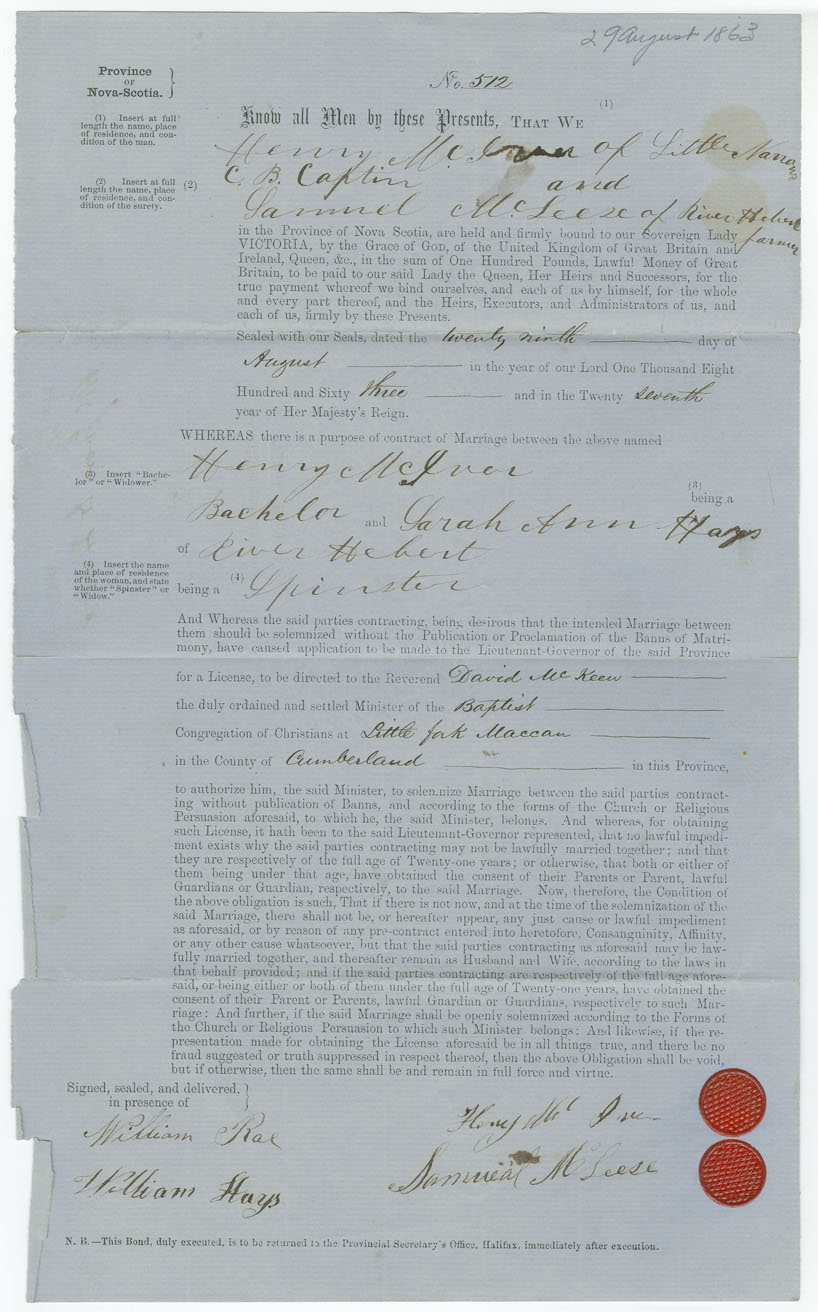 29 August 1863
Province
OF
Nova-Scotia.
No. 512
(1)
Know all Men by these Presents, THAT WE
(1) Insert at full
length the name, place
of residence, and con-
dition of the man.
Henry McIver of Little Narrows
C. B. Captin and
(2) Insert at full
length the name, place
of residence, and con-
dition of the surety.
(2)
Samuel McLeese of River Hebert
farmer
in the Province of Nova Scotia, are held and firmly bound to our Sovereign Lady
VICTORIA, by the Grace of GOD, of the United Kingdom of Great Britain and
Ireland, Queen, &c., in the sum of One Hundred Pounds, Lawful Money of Great
Britain, to be paid to our said Lady the Queen, Her Heirs and Successors, for the
true payment whereof we bind ourselves, and each of us by himself, for the whole
and every part thereof, and the Heirs, Executors, and Administrators of us, and
each of us, firmly by these Presents.
Sealed with our Seals, dated the twenty ninth day of
August in the year of our Lord One Thousand Eight
Hundred and Sixty three and in the Twenty seventh
year of Her Majesty's Reign.
WHEREAS there is a purpose of contract of Marriage between the above named
Henry McIver
(3) Insert "Bache-
lor" or "Widower."
(3)
being a
Bachelor and Sarah Ann Hays
of River Hebert
(4) Insert the name
and place of residence
of the woman, and state
whether "Spinster" or
"Widow."
being a (4) Spinster
And Whereas the said parties contracting, being desirous that the intended Marriage between
them should be solemnized without the Publication or Proclamation of the Banns of Matri-
mony, have caused application to be made to the Lieutenant-Governor of the said Province
for a License, to be directed to the Reverend David McKeen
the duly ordained and settled Minister of the Baptist
Congregation of Christians at Little fork Maccan
in the County of Cumberland in this Province,
to authorize him, the said Minister, to solemnize Marriage between the said parties contract-
ing without publication of Banns, and according to the forms of the Church or Religious
Persuasion aforesaid, to which he, the said Minister, belongs. And whereas, for obtaining
such License, it hath been to the said Lieutenant-Governor represented, that no lawful impedi-
ment exists why the said parties contracting may not be lawfully married together; and that
they are respectively of the full age of Twenty-one years; or otherwise, that both or either of
them being under that age, have obtained the consent of their Parents or Parent, lawful
Guardians or Guardian, respectively, to the said Marriage. Now, therefore, the Condition of
the above obligation is such, That if there is not now, and at the time of the solemnization of the
said Marriage, there shall not be, or hereafter appear, any just cause or lawful impediment
as aforesaid, or by reason of any pre-contract entered into heretofore, Consanguinity, Affinity,
or any other cause whatsoever, but that the said parties contracting as aforesaid may be law-
fully married together, and thereafter remain as Husband and Wife, according to the laws in
that behalf provided; and if the said parties contracting are respectively of the full age afore-
said, or being either or both of them under the full age of Twenty-one years, have obtained the
consent of their Parent or Parents, lawful Guardian or Guardians, respectively to such Mar-
riage: And further, if the said Marriage shall be openly solemnized according to the Forms of
the Church or Religious Persuasion to which such Minister belongs: And likewise, if the re-
presentation made for obtaining the License aforesaid be in all things true, and there be no
fraud suggested or truth suppressed in respect thereof, then the above Obligation shall be void,
but if otherwise, then the same shall be and remain in full force and virtue.
Signed, sealed, and delivered,
in presence of
William Rae
Henry Mc Iver
William Hays
Samueal McLeese
N. B.—This Bond, duly executed, is to be returned to the Provincial Secretary's Office, Halifax, immediately after execution.